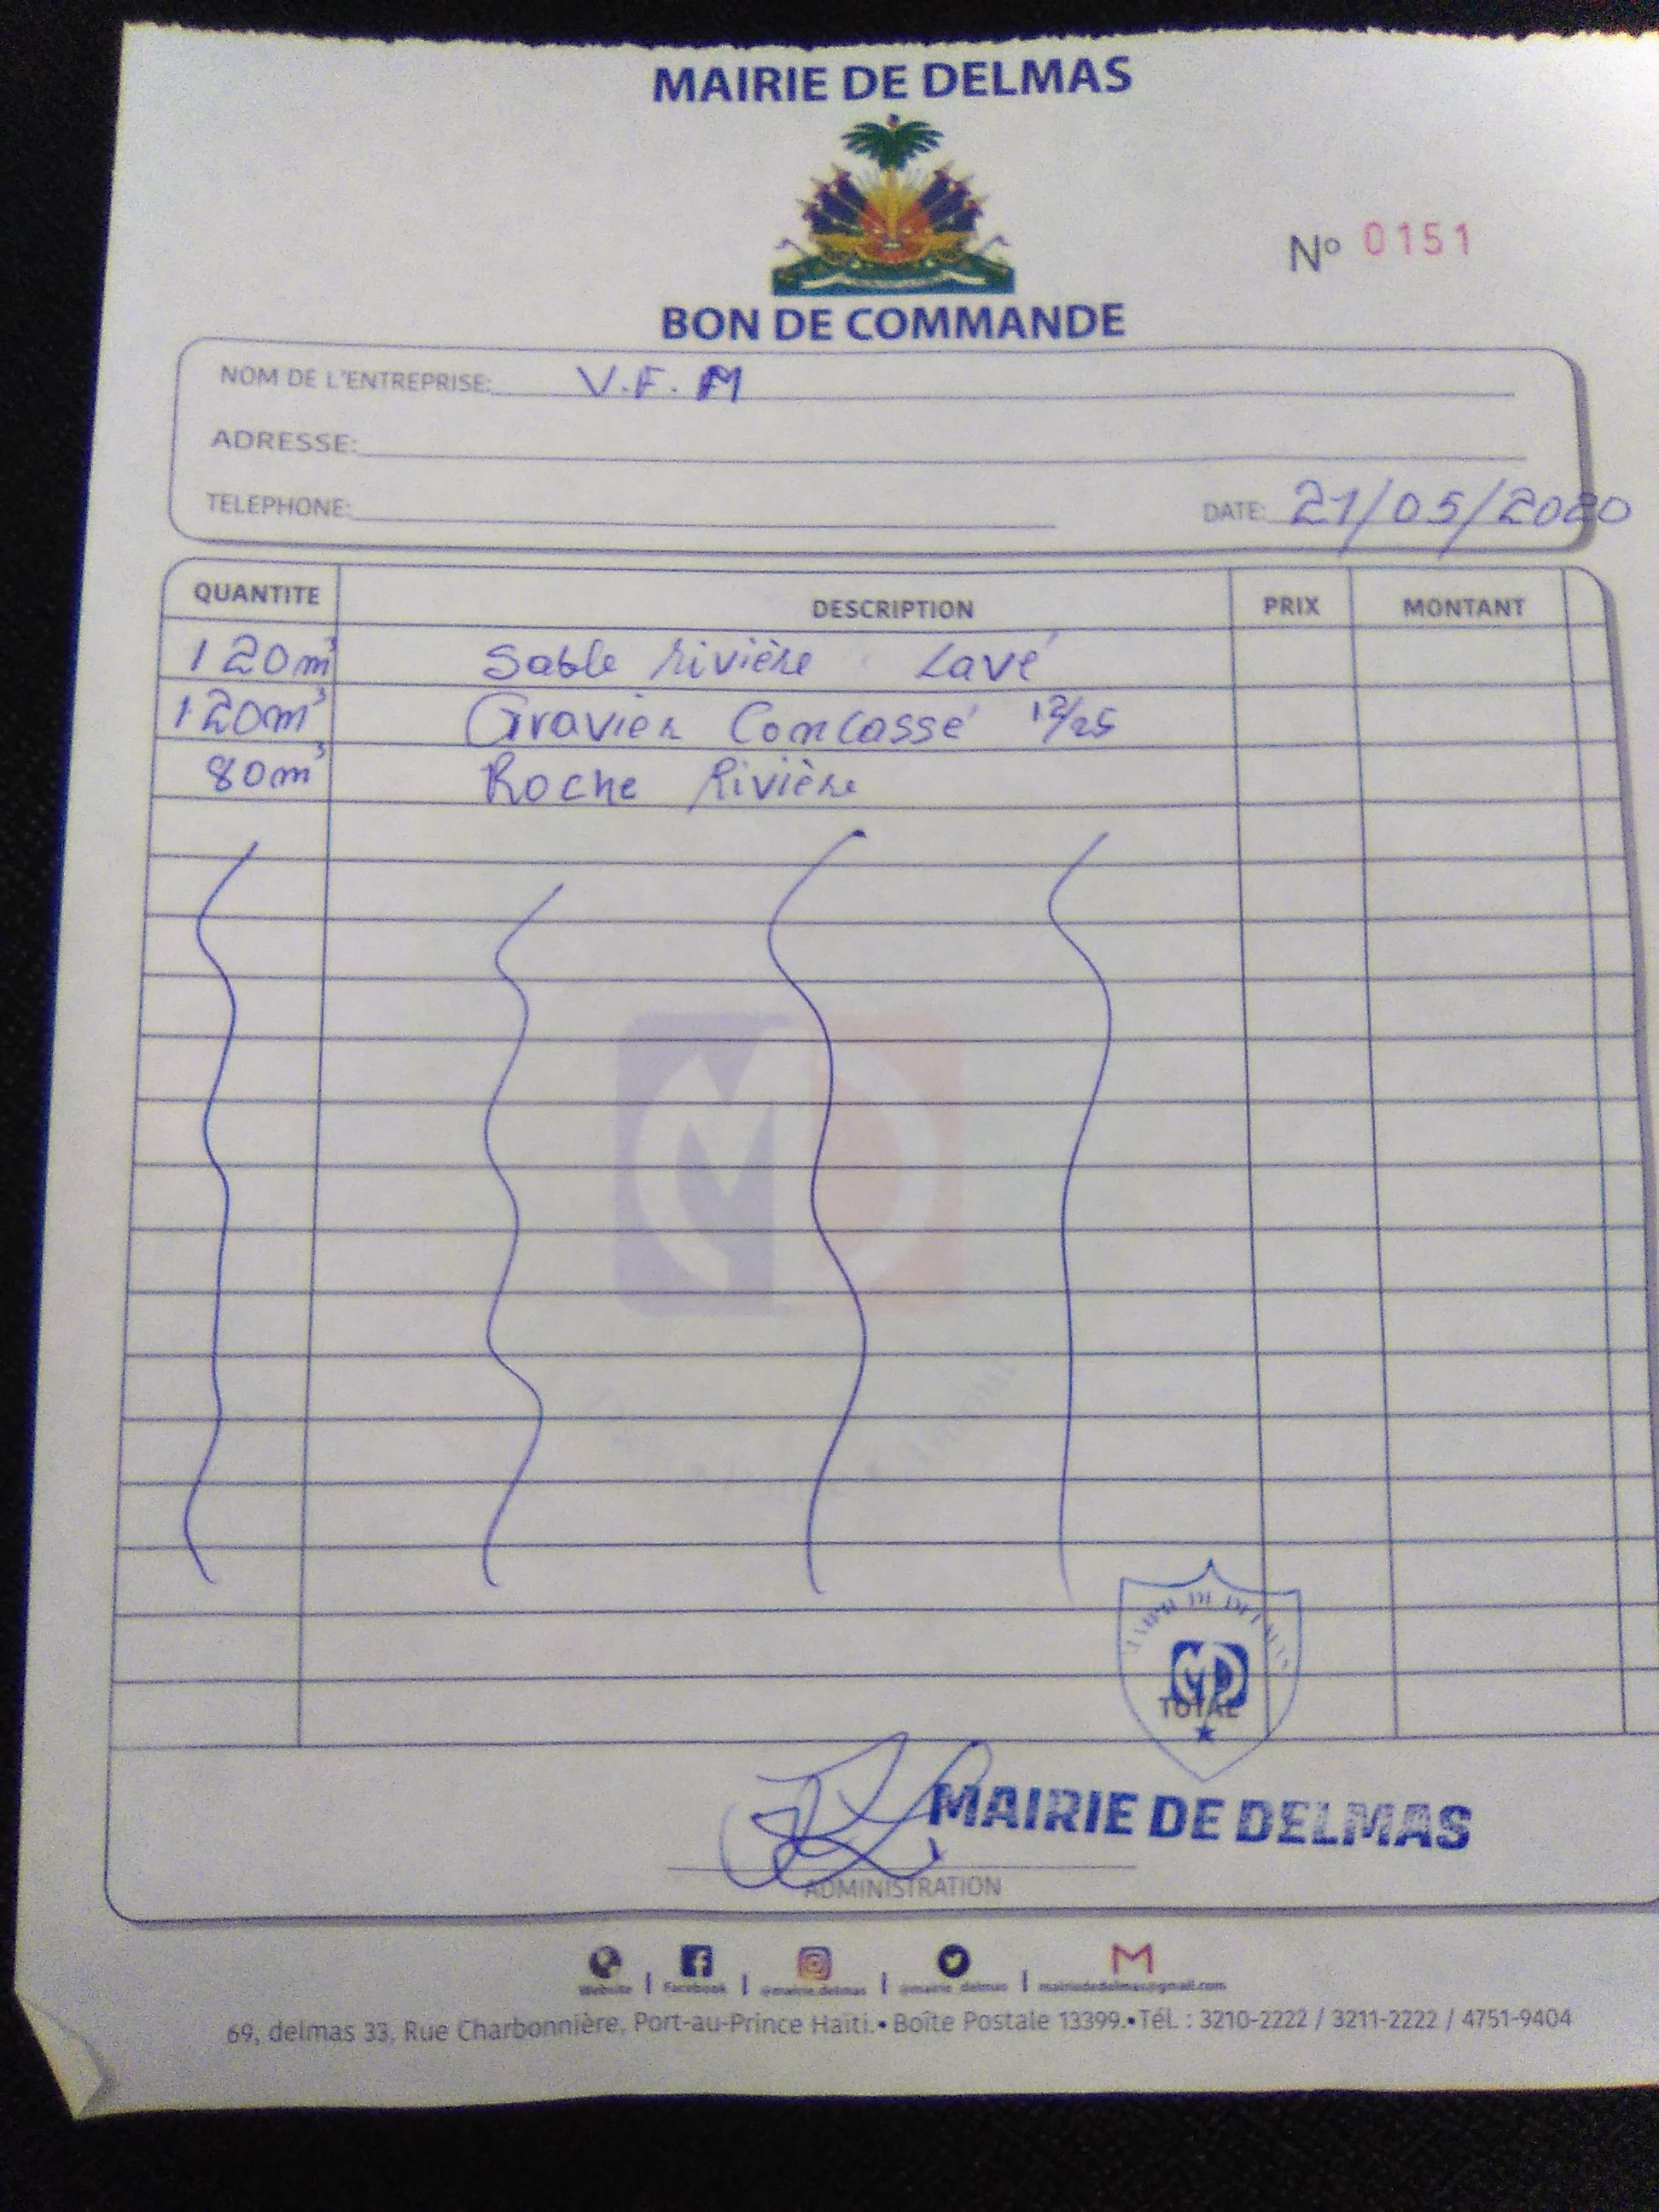 MAIRIE DE DELMAS
N° 0151
BON DE COMMANDE
NOM DE L'ENTREPRISE: V.F.M
ADRESSE:
TELEPHONE: DATE: 21/05/2020
QUANTITE DESCRIPTION PRIX MONTANT
120m³ Sable rivière Lavé
120m³ Gravier Concassé 12/25
80m³ Roche Rivière
MD
TOTAL
MAIRIE DE DELMAS
ADMINISTRATION
Website | Facebook | @mairie.delmas | @mairie_delmas | mairiededelmas@gmail.com
69, delmas 33, Rue Charbonnière, Port-au-Prince Haïti.• Boîte Postale 13399.•Tél. : 3210-2222 / 3211-2222 / 4751-9404